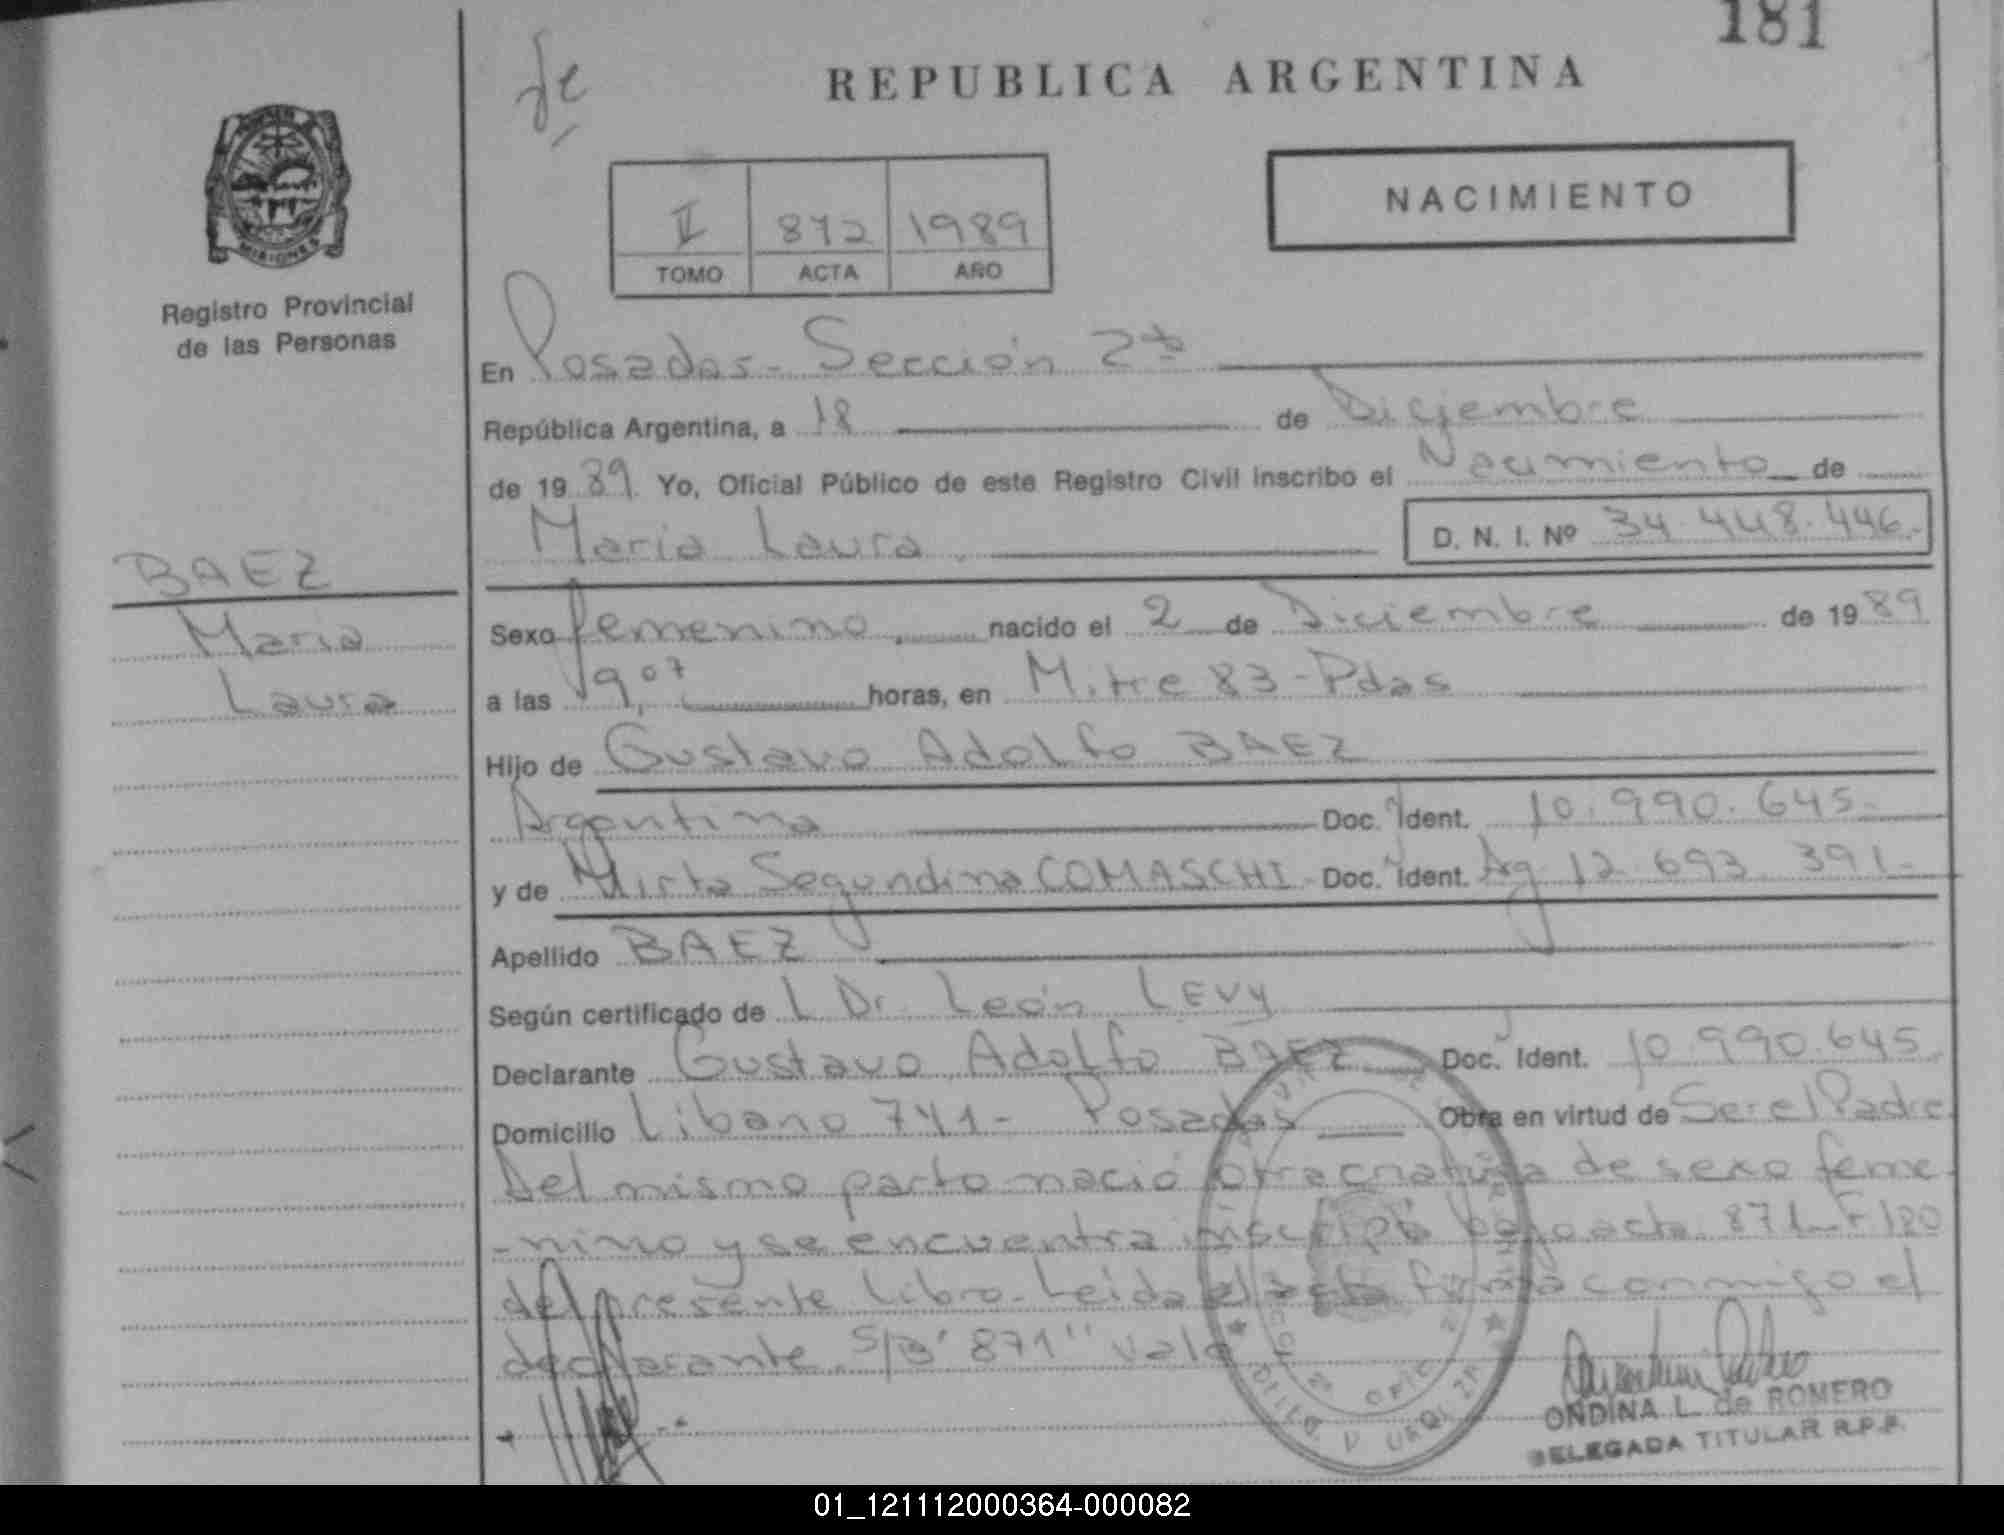 181
REPUBLICA ARGENTINA
NACIMIENTO
II 872 1989
TOMO ACTA AÑO
MISIONES
Registro Provincial
de las Personas
En Posadas - Sección 2ª
República Argentina, a 18 de Diciembre
de 1989. Yo, Oficial Público de este Registro Civil inscribo el Nacimiento de
Maria Laura. D. N. I. Nº 34.448.446.-
BAEZ
Maria
Laura
Sexo femenino, nacido el 2 de Diciembre de 1989
a las 9,07 horas, en Mitre 83 - Pdas
Hijo de Gustavo Adolfo BAEZ
Argentina Doc. Ident. 10.990.645.-
y de Mirta Segundina COMASCHI - Doc. Ident. Ag 12.693.391.-
Apellido BAEZ
Según certificado de L Dr. León LEVY
Declarante Gustavo Adolfo BAEZ Doc. Ident. 10.990.645.
Domicilio Libano 741 - Posadas Obra en virtud de Ser el Padre.
Del mismo parto nació otra criatura de sexo feme-
-nino y se encuentra inscripta bajo acta 871 - F 180
del presente libro. Leida el acta firma conmigo el
declarante. S/B "871" Vale
ONDINA L. de ROMERO
DELEGADA TITULAR R.P.P.
01_121112000364-000082